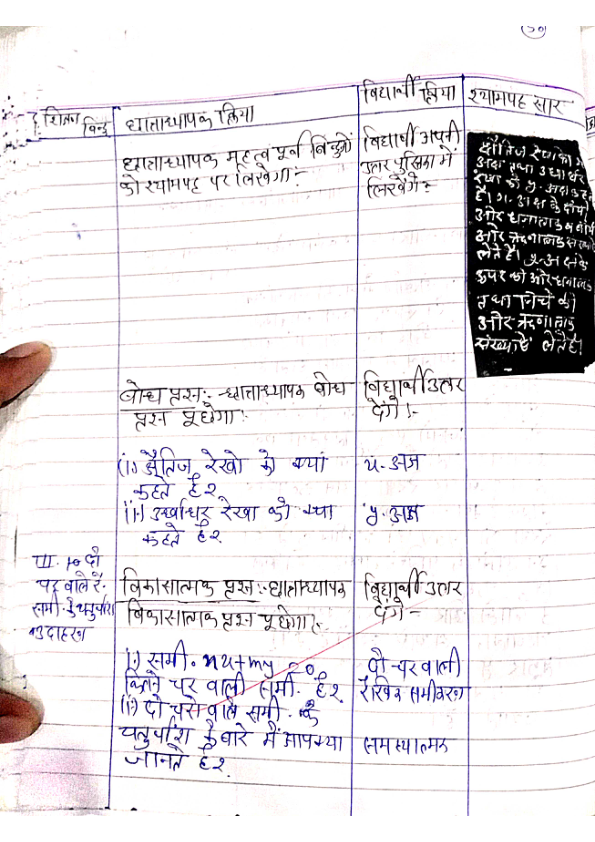 30
शिक्षण बिन्दु
छात्राध्यापक क्रिया
विद्यार्थी क्रिया
श्यामपट्ट सार
छात्राध्यापक महत्व पूर्ण बिन्दुओं
को श्यामपट्ट पर लिखेगा:-
विद्यार्थी अपनी
उत्तर पुस्तिका में
लिखेंगे:-
क्षैतिज रेखा को x-
अक्ष तथा उर्ध्वाधर
रेखा को y-अक्ष कहते
है। x-अक्ष के दांयी
ओर धनात्मक व बांयी
ओर ऋणात्मक संख्याएं
लेते है। y-अक्ष के
ऊपर की ओर धनात्मक
तथा निचे की
ओर ऋणात्मक
संख्याएं लेते है।
बोध प्रश्न:- छात्राध्यापक बोध
प्रश्न पूछेगा:-
विद्यार्थी उत्तर
देंगे:-
(i) क्षैतिज रेखो को क्या
कहते है?
x-अक्ष
(ii) उर्ध्वाधर रेखा को क्या
कहते है?
y-अक्ष
III. दो
चर वाले रै.
समी. के
उदाहरण
विकासात्मक प्रश्न:- छात्राध्यापक
विकासात्मक प्रश्न पूछेगा:-
विद्यार्थी उत्तर
देंगे:-
(i) समी. nx+my=0
कितने चर वाली समी. है?
दो चर वाली
रैखिक समीकरण
(ii) दो चरो वाले समी. के
चतुर्थांश के बारे में आप क्या
जानते है?
समस्यात्मक